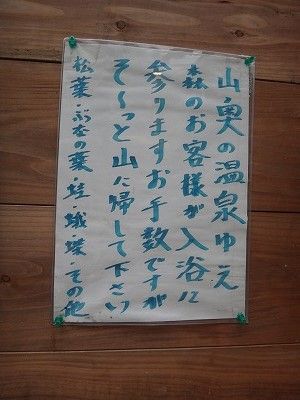 山奥の温泉ゆえ
森のお客様が入浴に
参りますお手数ですが
そ〜っと山に帰して下さい
松葉・ぶなの葉・虻・蛾・蝶・その他